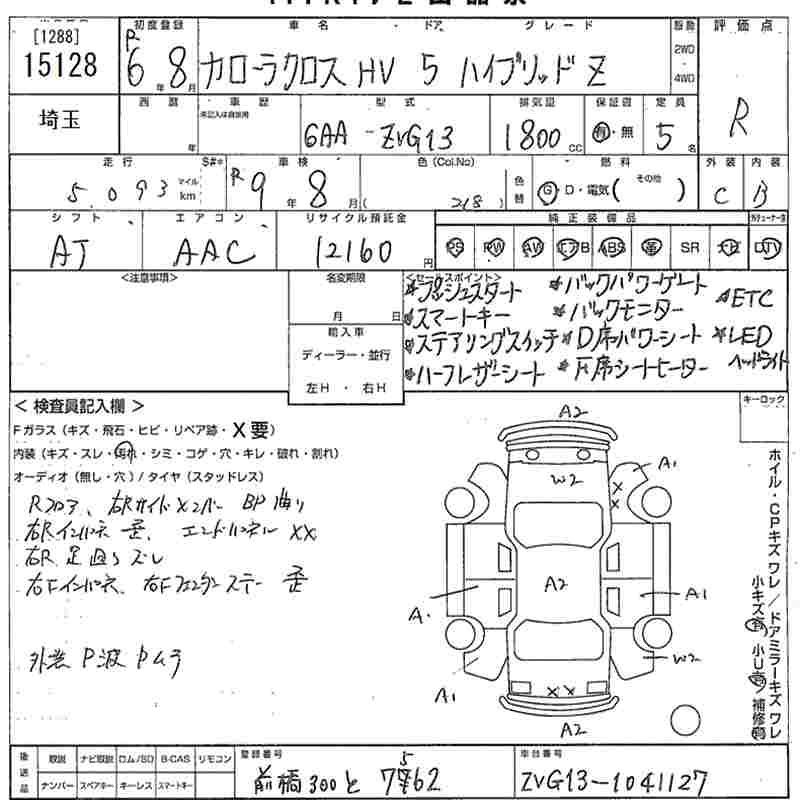 [1288]
15128
初度登録
R 6 年 8 月
車名 ・ ドア グレード
カローラクロス HV 5 ハイブリッド Z
駆動
2WD
4WD
評価点
R
埼玉
西暦
年
車歴
未記入は自家用
型式
6AA - ZVG13
排気量
1800 CC
保証書
有・無
定員
5 名
走行
5,093 マイル km
S#*
車検
R 9 年 8 月
色 (Col.No)
( 218 )
色替
燃料
G・D・電気( その他 )
外装
C
内装
B
シフト
AT
エアコン
AAC
リサイクル預託金
12160 円
純正装備品
PS PW AW エアB ABS 革 SR ナビ DTV
<注意事項>
名変期限
月 日
輸入車
ディーラー・並行
左H ・ 右H
<セールスポイント>
*プッシュスタート *バックパワーゲート *ETC
*スマートキー *バックモニター
*ステアリングスイッチ *D席パワーシート *LED
*ハーフレザーシート *F席シートヒーター ヘッドライト
< 検査員記入欄 >
Fガラス (キズ・飛石・ヒビ・リペア跡・X要)
内装 (キズ・スレ・汚れ・シミ・コゲ・穴・キレ・破れ・割れ)
オーディオ (無し・穴) / タイヤ (スタッドレス)
Rフロア、右Rサイドメンバー BP有り
右Rインパネ 歪、エンドパネル XX
右R足廻りズレ
右Fインパネ、右Fフェンダーステー 歪
外装 P波 Pムラ
キーロック
A2
A1
W2
X
X
A2
A1
A1
W2
A1
X X
A2
ホイル・CPキズワレ / ドアミラーキズワレ
小キズ有 小U有 補修有
後送品
取説 ナビ取説 ロム/SD B-CAS リモコン
ナンバー スペアキー キーレス スマートキー
登録番号
前橋 300 と 7762
5
車台番号
ZVG13-1041127